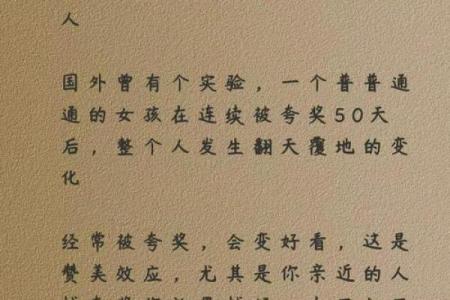 人
国外曾有个实验，一个普普通
通的女孩在连续被夸奖50天
后，整个人发生翻天覆地的变
化
经常被夸奖，会变好看，这是
赞美效应，尤其是你亲近的人